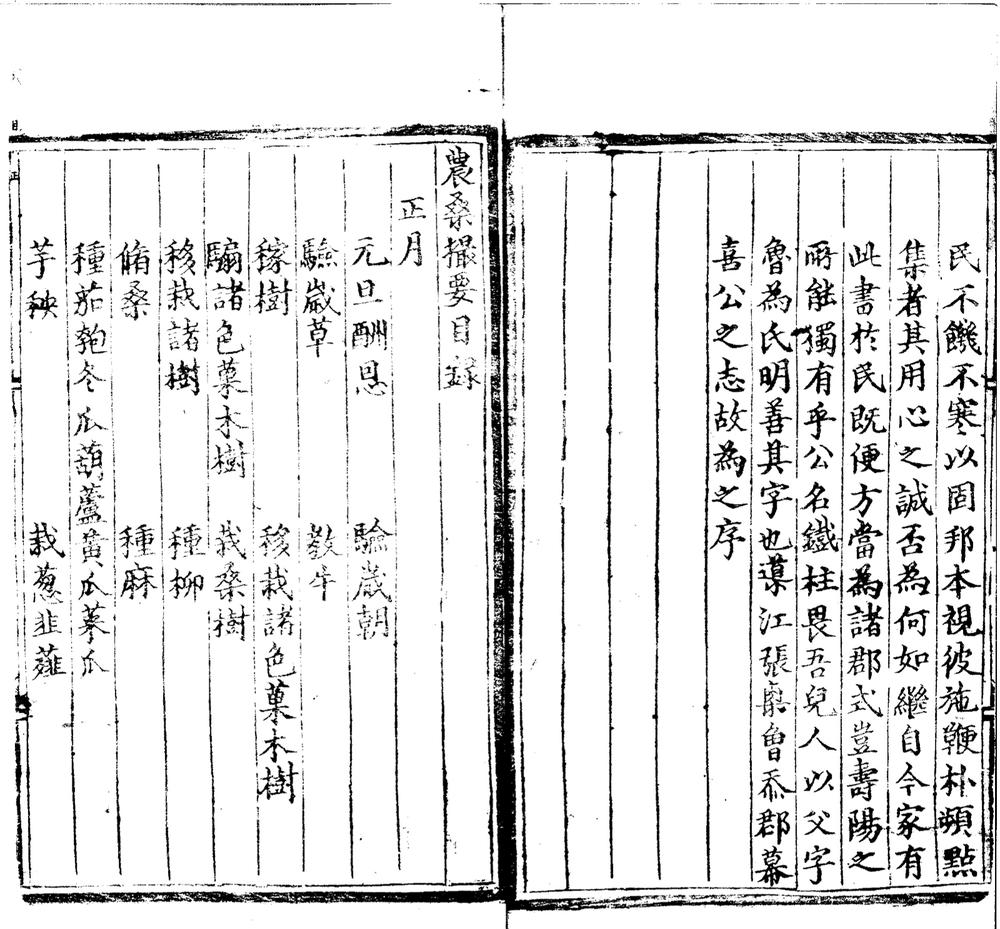 民不饑不寒以固邦本視彼施鞭朴頻㸃
集者其用心之誠否為何如繼自今家有
此書於民既便方當為諸郡式豈壽陽之
所能獨有乎公名鐵柱畏吾兒人以父字
魯為氏明善其字也導江張㮚曾忝郡幕
喜公之志故為之序
農桑撮要目錄
正月
元旦酬恩 驗歲朝
驗歲草 教牛
稼樹 移栽諸色菓木樹
騸諸色菓木樹 栽桑樹
移栽諸樹 種柳
脩桑 種麻
種茄匏冬瓜葫蘆黃瓜菜瓜
芋秧 栽葱韭薤